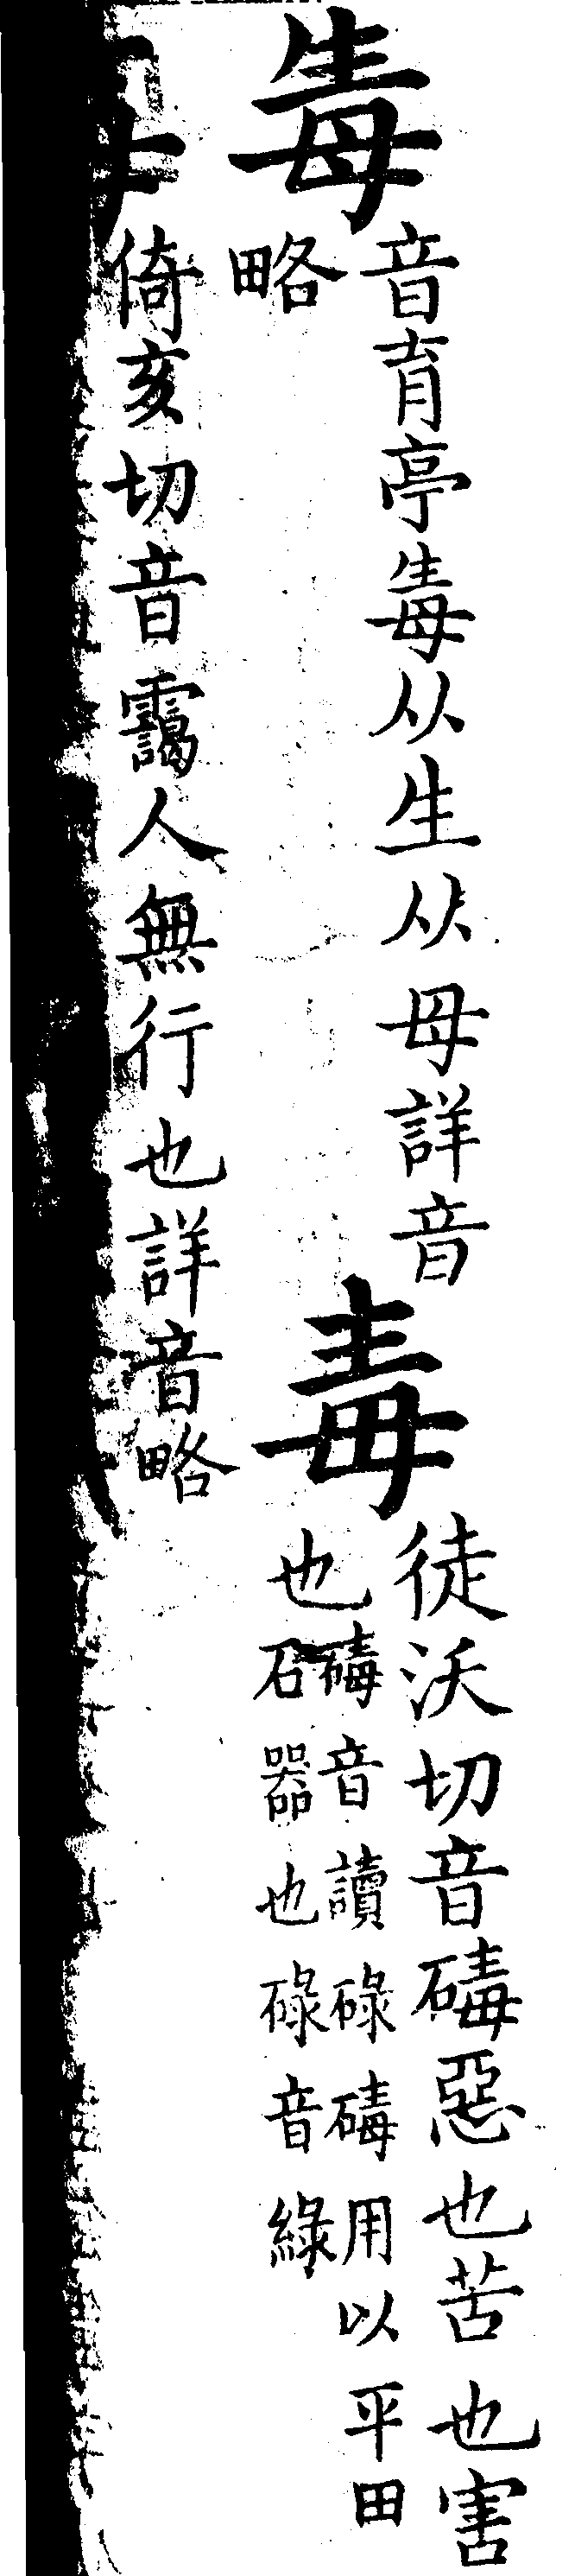 𡴕
音育亭𡴕从生从母詳音
略
毒
徒沃切音碡惡也苦也害
也
碡音讀碌碡用以平田
石器也碌音綠
倚亥切音靄人無行也詳音略